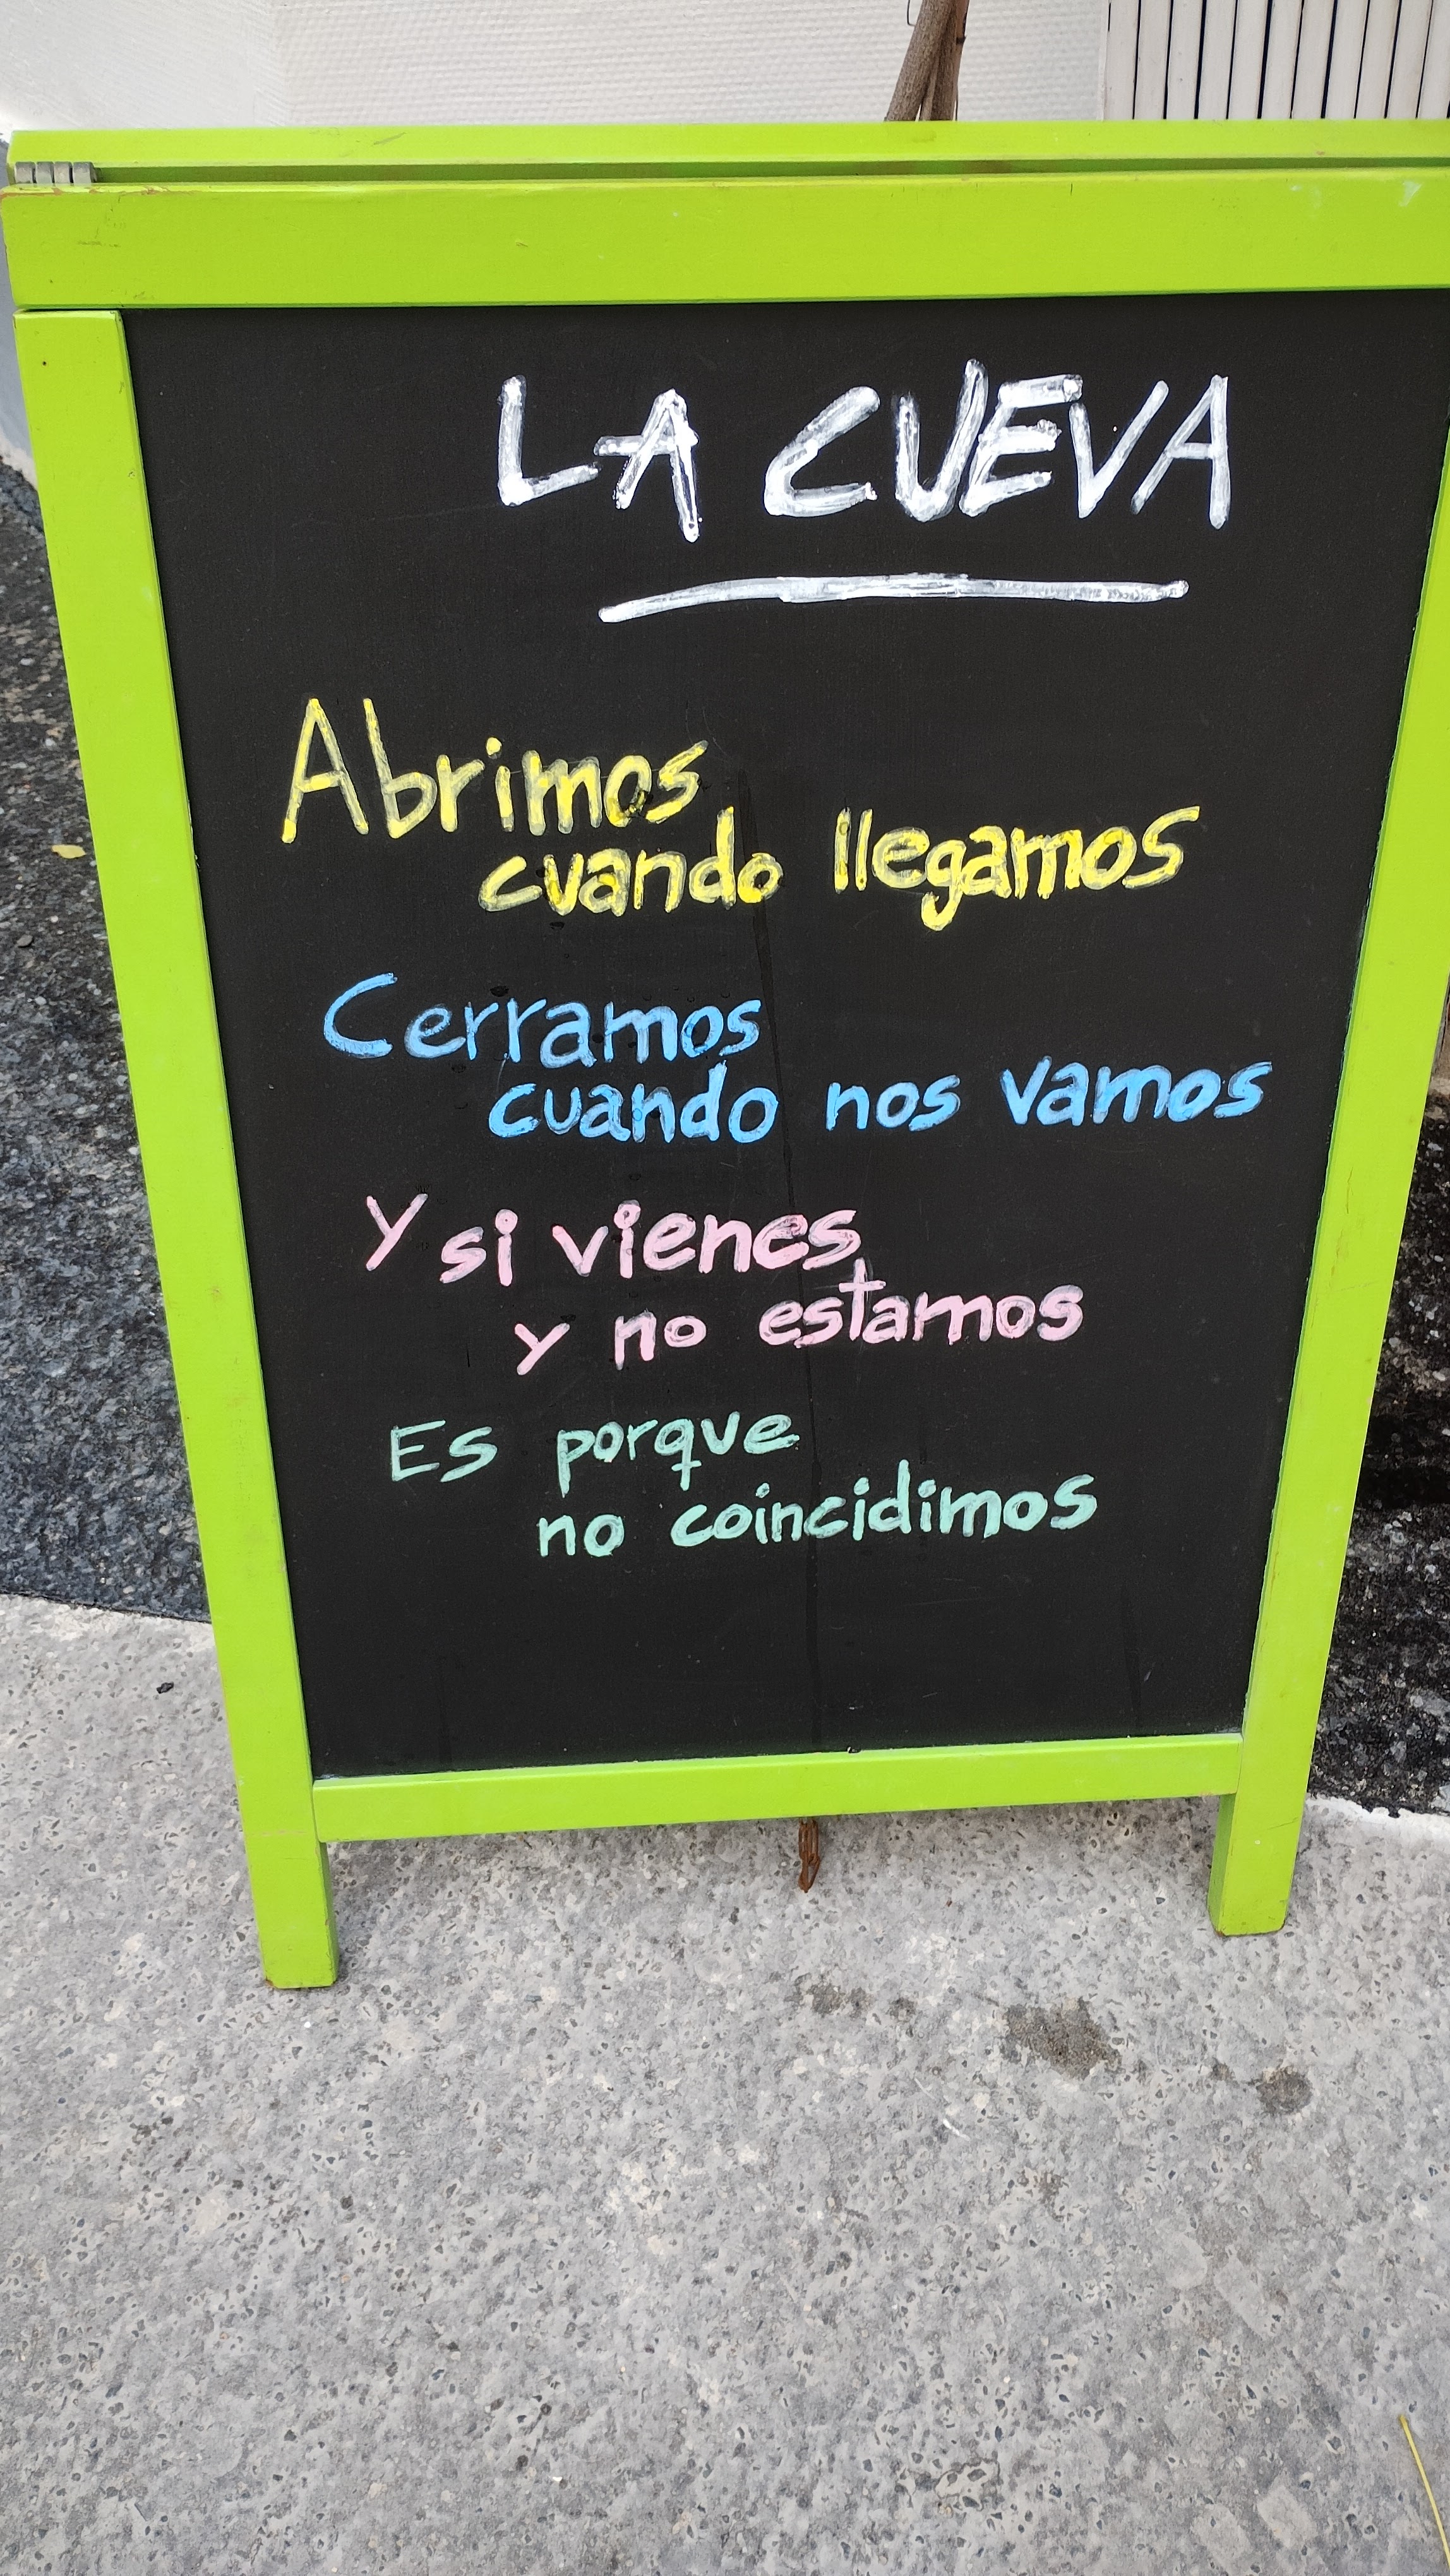 LA CUEVA
Abrimos
cuando llegamos
Cerramos
cuando nos vamos
Y si vienes
y no estamos
Es porque
no coincidimos